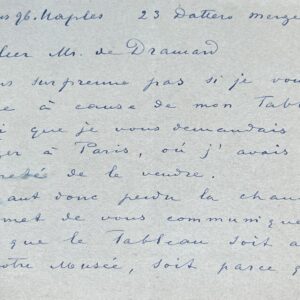 96. Naples 23 Dattero merge
lier Mr. de Dramard
us surprenne pas si je vou
e à cause de mon Tabl
i que je vous demandais
er à Paris, où j'avais
de la vendre.
ant donc perdu la chan
met de vous communique
que le Tableau soit a
otre Musée, soit parce q